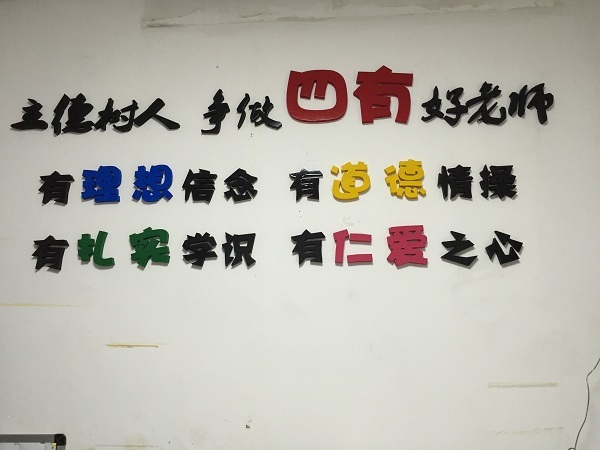 立德树人 争做四有好老师
有理想信念 有道德情操
有扎实学识 有仁爱之心